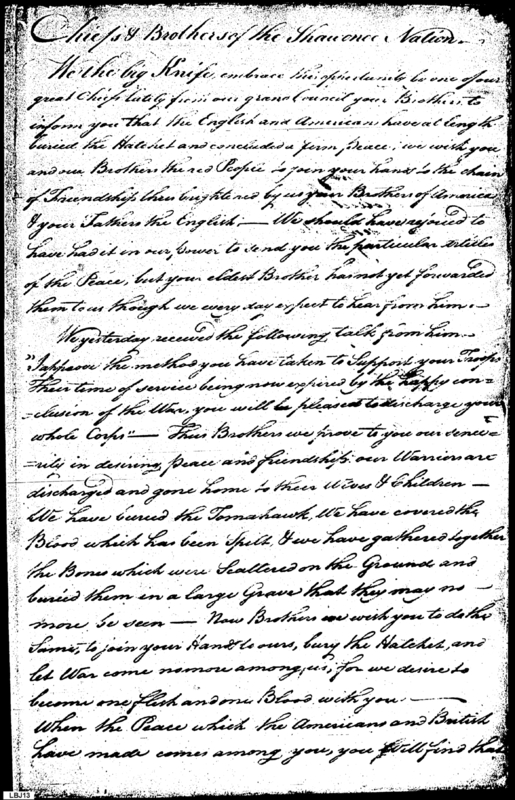 Chiefs & Brothers of the Shawonee Nation.
We the big Knife, embrace this opportunity by one of our
great Chiefs lately from our grand Council your Brothers, to
inform you that the English and Americans have at length
buried the Hatchet and concluded a firm peace; we wish you
and our Brothers the red People to join your hands to the chain
of Friendship thus brightened by us your Brothers of America
& your Fathers the English. — We should have rejoiced to
have had it in our power to send you the particular Articles
of the Peace, but your eldest Brother has not yet forwarded
them to us though we every day expect to hear from him. -
We yesterday received the following talk from him. -
"I approve the method you have taken to Support your Troops
Their time of service being now expired by the happy con=
=clusion of the War, you will be pleased to discharge your
whole Corps" — Thus Brothers we prove to you our sence=
=rity in desiring, peace and friendship: our Warriors are
discharged and gone home to their Wives & Children —
We have buried the Tomahawk, We have covered the
Blood which has been Spilt, & we have gathered together
the Bones which were Scattered on the Ground and
buried them in a large Grave that they may no -
more be seen — Now Brothers we wish you to do the
Same, to join your Hands to ours, bury the Hatchet, and
let War come no more among us; for we desire to
become one flesh and one Blood with you —
When the Peace which the Americans and British
have made comes among you, you will find that
LBJ13